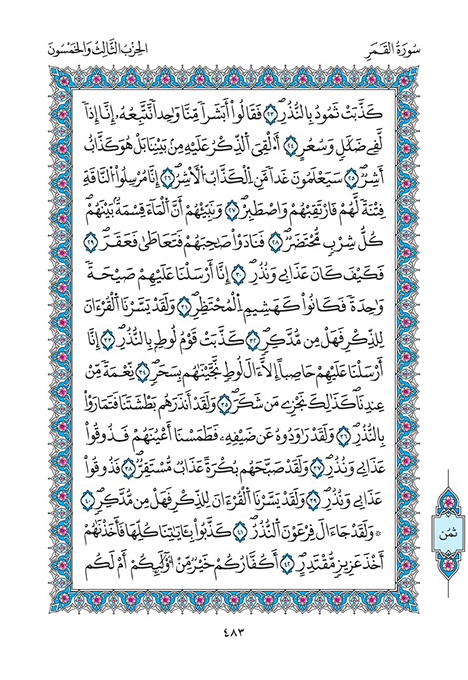 سُورَةُ الْقَمَرِ
الحِزْبُ الثَّالِثُ وَالخَمْسُونَ
كَذَّبَتْ ثَمُودُ بِالنُّذُرِ ٢٣ فَقَالُوٓاْ أَبَشَراٗ مِّنَّا وَٰحِداٗ نَّتَّبِعُهُۥٓ إِنَّآ إِذاٗ
لَّفِے ضَلَٰلٖ وَسُعُرٍ ٢٤ أَ۟لْقِيَ الذِّكْرُ عَلَيْهِ مِنۢ بَيْنِنَا بَلْ هُوَ كَذَّابٌ
أَشِرٞ ٢٥ سَيَعْلَمُونَ غَداٗ مَّنِ الْكَذَّابُ الْأَشِرُ ٢٦ إِنَّا مُرْسِلُواْ النَّاقَةِ
فِتْنَةٗ لَّهُمْ فَارْتَقِبْهُمْ وَاصْطَبِرْ ٢٧ وَنَبِّئْهُمْ أَنَّ الْمَآءَ قِسْمَةُۢ بَيْنَهُمْ
كُلُّ شِرْبٖ مُّحْتَضَرٞ ٢٨ فَنَادَوْاْ صَاحِبَهُمْ فَتَعَاطَىٰ فَعَقَرَ ٢٩
فَكَيْفَ كَانَ عَذَابِے وَنُذُرِ ٣٠ إِنَّآ أَرْسَلْنَا عَلَيْهِمْ صَيْحَةٗ
وَٰحِدَةٗ فَكَانُواْ كَهَشِيمِ الْمُحْتَظِرِ ٣١ وَلَقَدْ يَسَّرْنَا الْقُرْءَانَ
لِلذِّكْرِ فَهَلْ مِن مُّدَّكِرٖ ٣٢ كَذَّبَتْ قَوْمُ لُوطِۢ بِالنُّذُرِ ٣٣ إِنَّآ
أَرْسَلْنَا عَلَيْهِمْ حَاصِباً إِلَّآ ءَالَ لُوطٖ نَّجَّيْنَٰهُم بِسَحَرٖ ٣٤ نِّعْمَةٗ مِّنْ
عِندِنَا كَذَٰلِكَ نَجْزِے مَن شَكَرَ ٣٥ وَلَقَدْ أَنذَرَهُم بَطْشَتَنَا فَتَمَارَوْاْ
بِالنُّذُرِ ٣٦ وَلَقَدْ رَٰوَدُوهُ عَن ضَيْفِهِۦ فَطَمَسْنَآ أَعْيُنَهُمْ فَذُوقُواْ
عَذَابِے وَنُذُرِ ٣٧ وَلَقَدْ صَبَّحَهُم بُكْرَةً عَذَابٞ مُّسْتَقِرّٞ ٣٨ فَذُوقُواْ
عَذَابِے وَنُذُرِ ٣٩ وَلَقَدْ يَسَّرْنَا الْقُرْءَانَ لِلذِّكْرِ فَهَلْ مِن مُّدَّكِرٖ ٤٠
* وَلَقَدْ جَآءَ الَ فِرْعَوْنَ النُّذُرُ ٤١ كَذَّبُواْ بِـَٔايَٰتِنَا كُلِّهَا فَأَخَذْنَٰهُمْ
أَخْذَ عَزِيزٖ مُّقْتَدِرٍ ٤٢ أَكُفَّارُكُمْ خَيْرٞ مِّنْ أُوْلَٰٓئِكُمْ أَمْ لَكُم
ثُمُن
٤٨٣